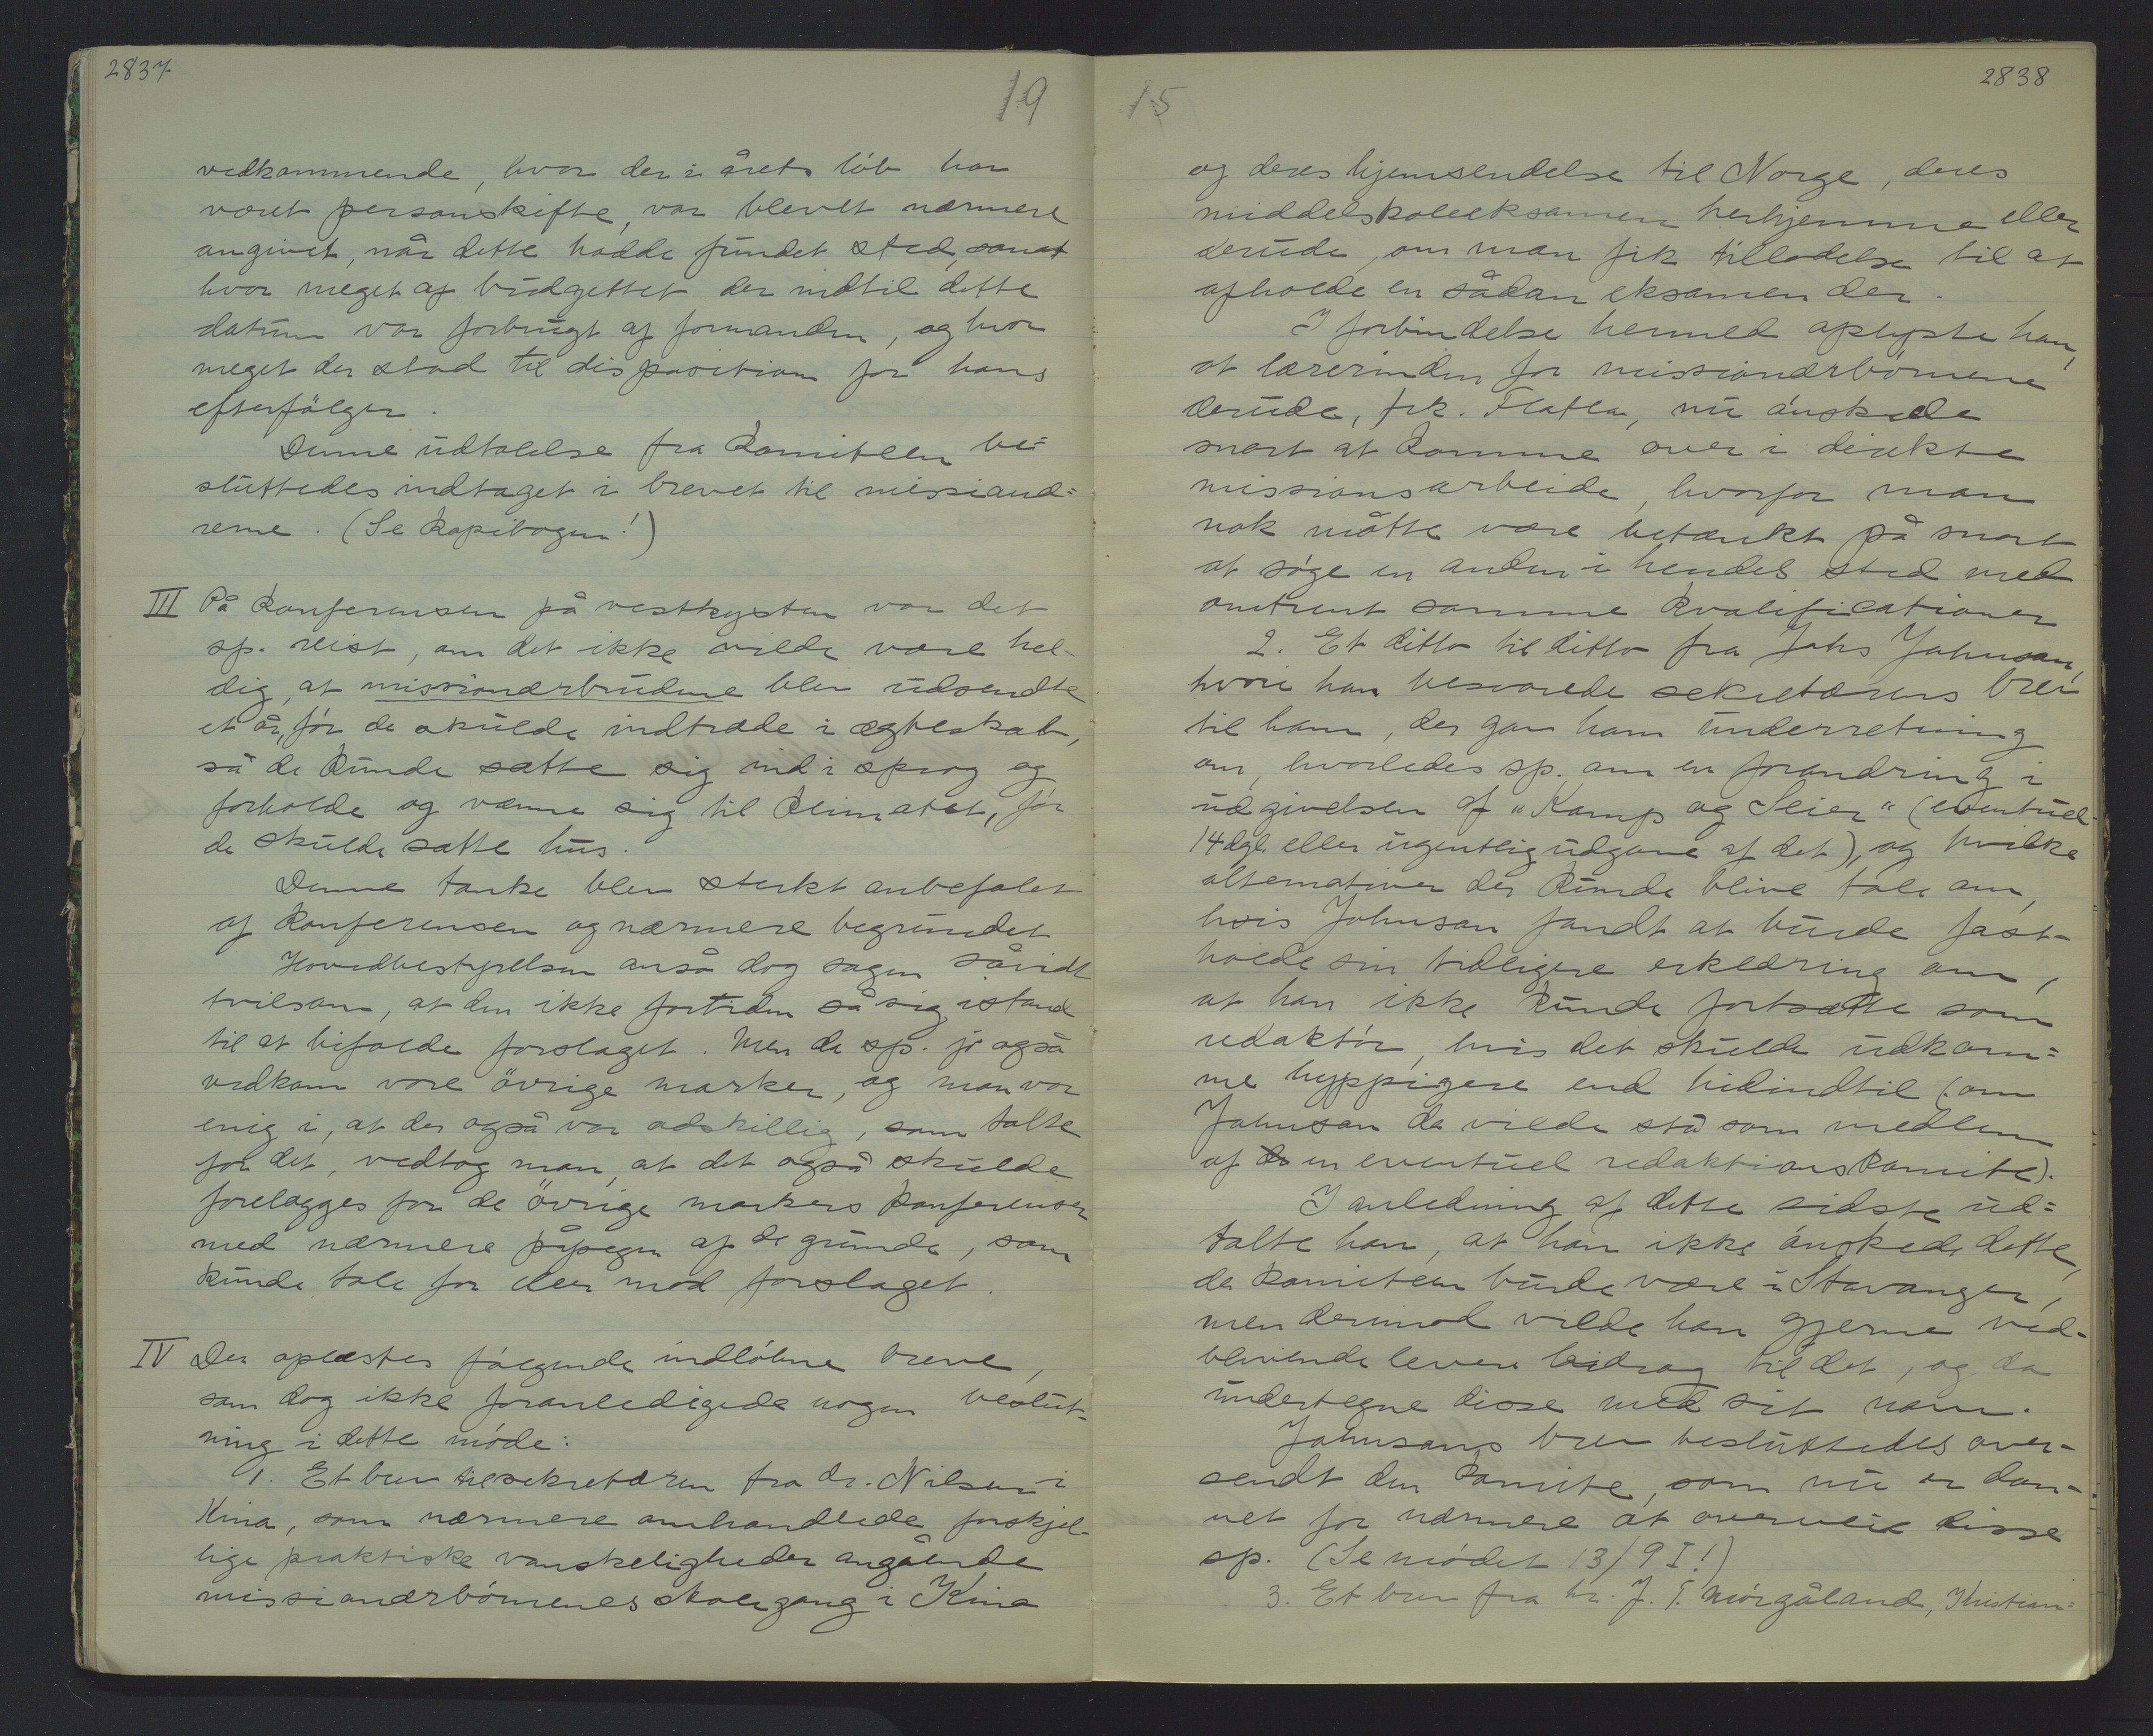 2837
19
vedkommende, hvor der i årets löb har
været personskifte, var blevet nærmere
angivet, når dette hadde fundet sted, samt
hvor meget af budgettet der indtil dette
datum var forbrugt af formanden, og hvor
meget der stod til disposition for hans
efterfölger.
Denne udtalelse fra komiteen be=
sluttedes indtaget i brevet til missionæ=
rerne. (Se kopibogen!)
III På konferensen på vestkysten var det
sp. reist, om det ikke vilde være hel-
dig, at missionærbrudene blev udsendte
et år, før de skulde indtræde i ægteskab,
så de kunde sætte sig ind i sprog og
forholde og vænne sig til klimatet, før
de skulde sætte hus.
Denne tanke blev sterkt anbefalet
af konferensen og nærmere begrundet
Hovedbestyrelsen anså dog sagen såvidt
tvilsom, at den ikke fortiden så sig istand
til at bifalde forslaget. Men da sp. jo også
vedkom vore övrige marker, og man var
enig i, at der også var adskillig, som talte
for det, vedtog man, at det også skulde
forelægges for de övrige markers konferenser
med nærmere påpegen af de grunde, som
kunde tale for eller mod forslaget.
IV Der oplæstes fölgende indlöbne breve,
som dog ikke foranledigede nogen beslut-
ning i dette möde:
1. Et brev til sekretæren fra dr. Nilssen i
Kina, som nærmere omhandlede forskjel-
lige praktiske vanskeligheder angående
missionærbörnenes skolegang i Kina
15
2838
og deres hjemsendelse til Norge, deres
middelskoleeksamen herhjemme eller
derude, om man fik tilladelse til at
afholde en sådan eksamen der.
I forbindelse hermed oplyste han,
at lærerinden for missionærbörnene
derude, frk. Flatla, nu önskede
snart at komme over i direkte
missionsarbeide, hvorfor man
nok måtte være betænkt på snart
at söge en anden i hendes sted med
omtrent samme kvalificationer
2. Et ditto til ditto fra Johs Johnson,
hvori han besvarede sekretærens brev
til ham, der gav ham underretning
om, hvorledes sp. om en forandring i
udgivelsen af "Kamp og Seier" (eventuel
14 dgl. eller ugentlig udgave af det), og hvilke
alternativer der kunde blive tale om,
hvis Johnson fandt at burde fast-
holde sin tidligere erklæring om,
at han ikke kunde fortsætte som
redaktör, hvis det skulde udkom=
me hyppigere end hidindtil (om
Johnson da vilde stå som medlem
af en eventuel redaktionskomite).
I anledning af dette sidste ud=
talte han, at han ikke önskede dette,
da komiteen burde være i Stavanger,
men derimod vilde han gjerne ved-
blivende levere bidrag til det, og da
undertegne disse med sit navn.
Johnsons brev besluttedes over-
sendt den komite, som nu er dan-
net for nærmere at overveie disse
sp. (Se mödet 13/9 I!)
3. Et brev fra hr. J. T. Mörgåland, Kristian=